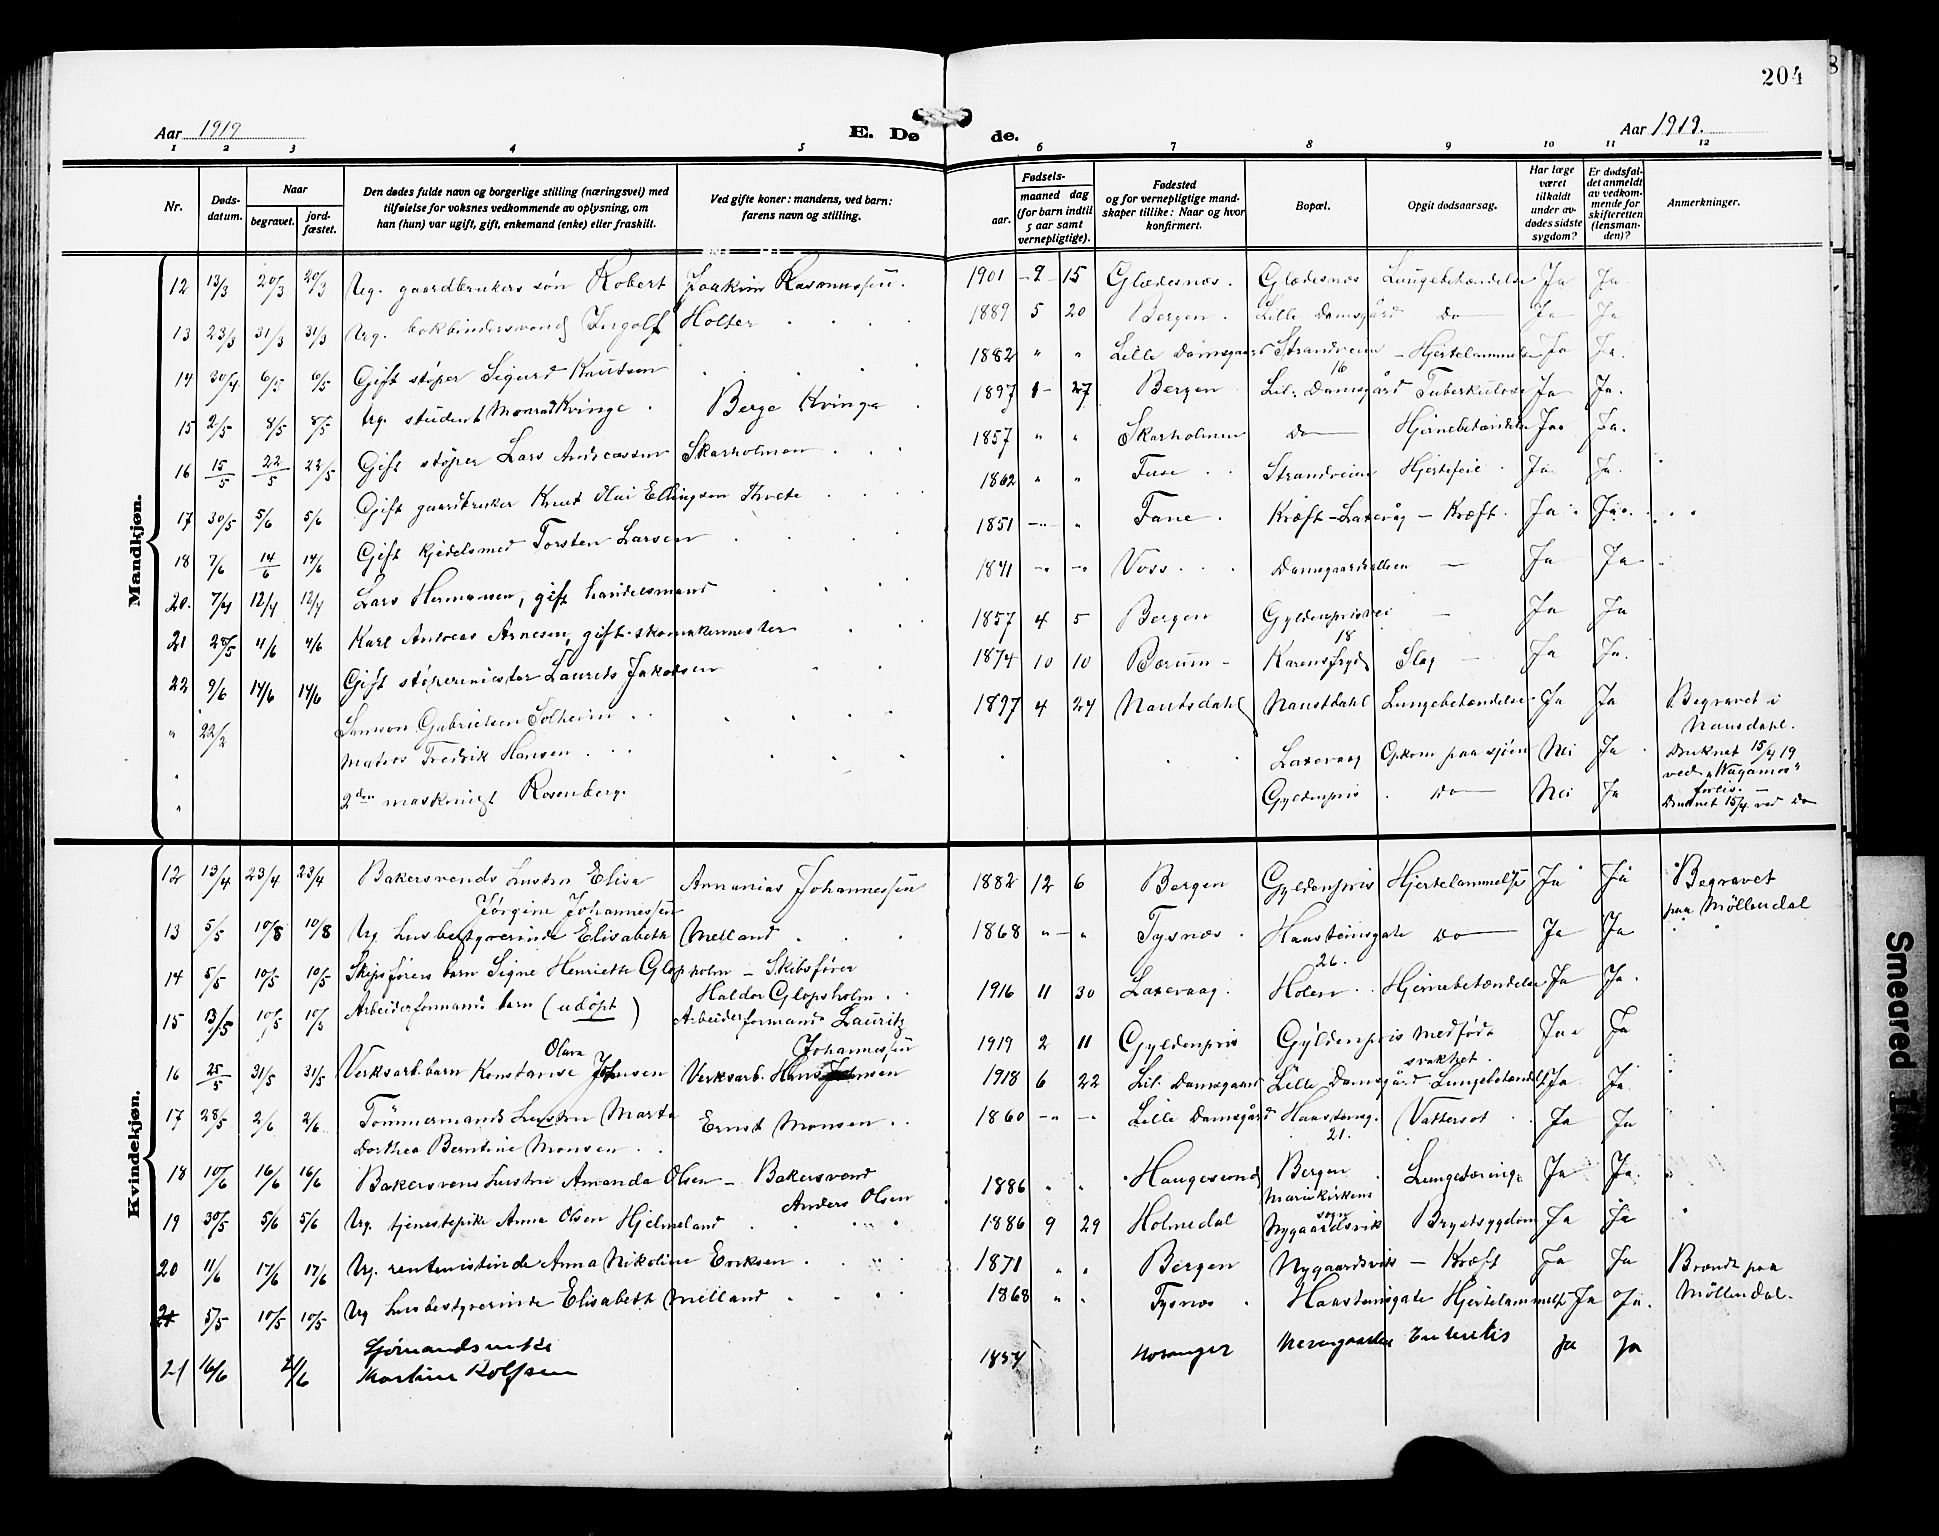 204
8
Aar 1919
E. Dø
de.
Aar 1919.
1 2 3 4 5 6 7 8 9 10 11 12
Nr.
Døds-datum.
Naar
begravet.
jord-fæstet.
Den dødes fulde navn og borgerlige stilling (næringsvei) med tilføielse for voksnes vedkommende av oplysning, om han (hun) var ugift, gift, enkemand (enke) eller fraskilt.
Ved gifte koner: mandens, ved barn: farens navn og stilling.
Fødsels-
aar.
maaned dag (for barn indtil 5 aar samt vernepligtige).
Fødested og for vernepligtige mand-skaper tillike: Naar og hvor konfirmert.
Bopæl.
Opgit dødsaarsag.
Har læge været tilkaldt under av-dødes sidste sygdom?
Er dødsfal-det anmeldt av vedkom-mende for skifteretten (lensman-den)?
Anmerkninger.
Mandkjøn.
12 13/3 20/3 20/3 Ug. gaardbrukers søn Robert Joakim Rasmussen. 1901 9 15 Glædesnæs. Glædesnæs Lungebetændelse Ja Ja
13 23/3 31/3 31/3 Ug. bokbindersvend Ingolf Holter 1889 5 20 Bergen. Lille Damsgård do Ja Ja
14 30/4 6/5 6/5 Gift støper Sigurd Knutsen 1882 " " Lille Damsgaard Strandveien 16 Hjertelammelse Ja Ja.
15 2/5 8/5 8/5 Ug. student Monrad Kvinge. Berge Kvinge 1897 1 27 Bergen Lil. Damsgård Tuberkulose Ja Ja.
16 15/5 22/5 22/5 Gift støper Lars Andreassen Skarholmen 1857 " " Skarholmen do Hjernebetændelse Ja Ja.
17 30/5 5/6 5/6 Gift gaardbruker Knut Ellingsen Tvete 1862 " " Fuse Strandveien Hjertefeil Ja Ja.
18 7/6 14/6 14/6 Gift kjedelsmed Torsten Larsen 1851 " " Fane. Kræft - Laxevåg - Kræft. Ja Ja.
20. 7/4 12/4 12/4 Lars Hermansen, gift handelsmand 1841 " " Voss Damsgaardsalleen Ja Ja
21 28/5 4/6 4/6 Karl Andreas Arnesen, gift skomakermester 1857 4 5 Bergen Gyldenprisvei 18 Ja Ja
22 9/6 14/6 14/6 Gift støpermester Laurits Jakobsen 1874 10 10 Bærum Karensfryd Slag Ja Ja.
" 22/2 Samson Gabrielsen Solheim 1897 4 24 Nautsdahl Naustdahl Lungebetændelse Ja Ja Begravet i Nausdahl.
" Matros Fredrik Hansen Laxevaag Opkom paa sjøen Nei Ja Druknet 15/4 19 ved "Wagamos" forlis.
" 2den maskinist Rosenberg. Gyldenpris do Nei Ja Druknet 15/4 ved do
Kvindekjøn.
12 13/4 23/4 23/4 Bakersvends hustru Elisa Jørgine Johannessen Annanias Johannessen 1882 12 6 Bergen Gyldenpris Hjertelammelse Ja Ja Begravet paa Møllendal
13 5/5 10/8 10/8 Ug husbestyrerinde Elisabeth Melland 1868 " " Tysnæs. Haasteinsgate 26. do Ja Ja
14 5/5 10/5 10/5 Skipsførers barn Signe Henriette Glopholm - Skibsfører Haldor Glopsholm 1916 11 30 Laxevaag. Holen Hjernebetændelse Ja Ja.
15 3/5 10/5 10/5 Arbeiderformands barn (udöpt) Arbeiderformand Lauritz Johannessen 1919 2 11 Gyldenpris Gyldenpris Medfødt svakhet. Ja Ja
16 25/5 31/5 31/5 Verksarb. barn Konstanse Olava Johnsen Verksarb. Hans Johnsen 1918 6 22 Lil. Damsgaard Lille Damsgård Lungebetændelse Ja Ja
17 28/5 2/6 2/6 Tömmermands hustru Marta Dorthea Berntine Monsen Ernst Monsen 1860 " " Lille Damsgård Haasteinsg. 21. Vattersot Ja Ja
18 10/6 16/6 16/6 Bakersvens hustru Amanda Olsen - Bakersvend Anders Olsen 1886 " " Haugesund Bergen Mariekirkens sogn Lungetæring. Ja Ja.
19 30/5 5/6 5/6 Ug. tjenestepike Anna Olsen Hjelmeland 1886 9 29 Holmedal Nygaardsvik Brystsygdom Ja Ja
20 11/6 17/6 17/6 Ug. rentenistinde Anna Nikoline Eriksen 1871 " " Bergen Nygaardsvik - Kræft Ja Ja Brændt paa Møllendal.
21 5/5 10/5 10/5 Ug husbestyrerinde Elisabeth Melland 1868 " " Tysnæs Haasteinsgate Hjertelammelse Ja Ja.
21 16/6 21/6 Sjömandsenke Martine Rolfsen 1854 Hosanger Enteritis Ja Ja
Smeared Ink